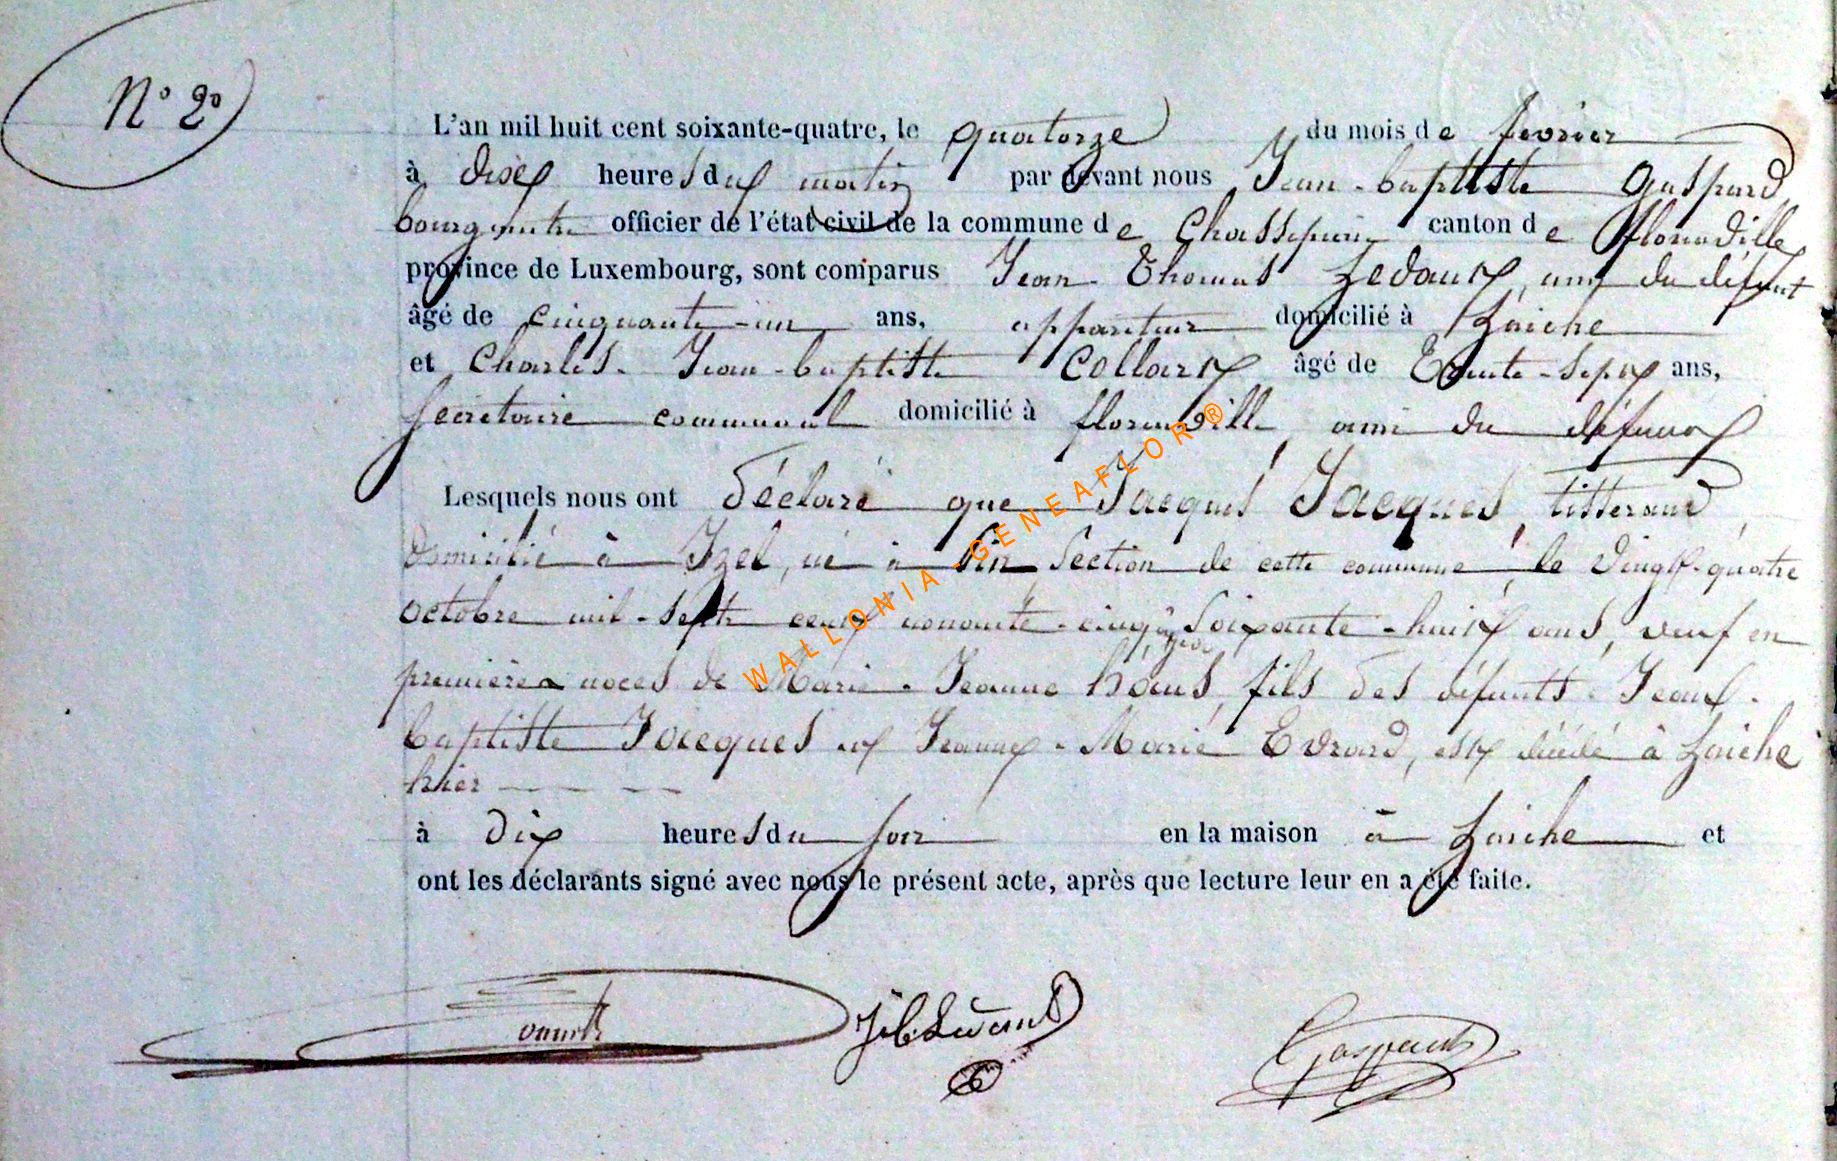 N° 2°
L'an mil huit cent soixante-quatre, le quatorze du mois de fevrier
à dix heures du matin par devant nous Jean-baptiste Gaspard
bourgmestre officier de l'état civil de la commune de Chassepierre canton de florenville
province de Luxembourg, sont comparus Jean-Thomas Ledant, ami du défunt
âgé de cinquante-un ans, appariteur domicilié à Laiche
et Charles-Jean-baptiste Collart âgé de Trente-sept ans,
secretaire communal domicilié à florenville ami du défunt
Lesquels nous ont déclaré que Jacques Jacques, tisserand,
domicilié à Izel, né à Section de cette commune, le vingt-quatre
octobre mil-sept cent nonante-cinq, âgé de Soixante-huit ans, veuf en
première noces de Marie-Jeanne fils des défunts Jean-
baptiste Jacques et Jeanne-Marie Evrard, est décédé à Laiche
hier
à dix heures du soir en la maison à Laiche et
ont les déclarants signé avec nous le présent acte, après que lecture leur en a été faite.
Gaspard
WALLONIA-GENEAFLOR®